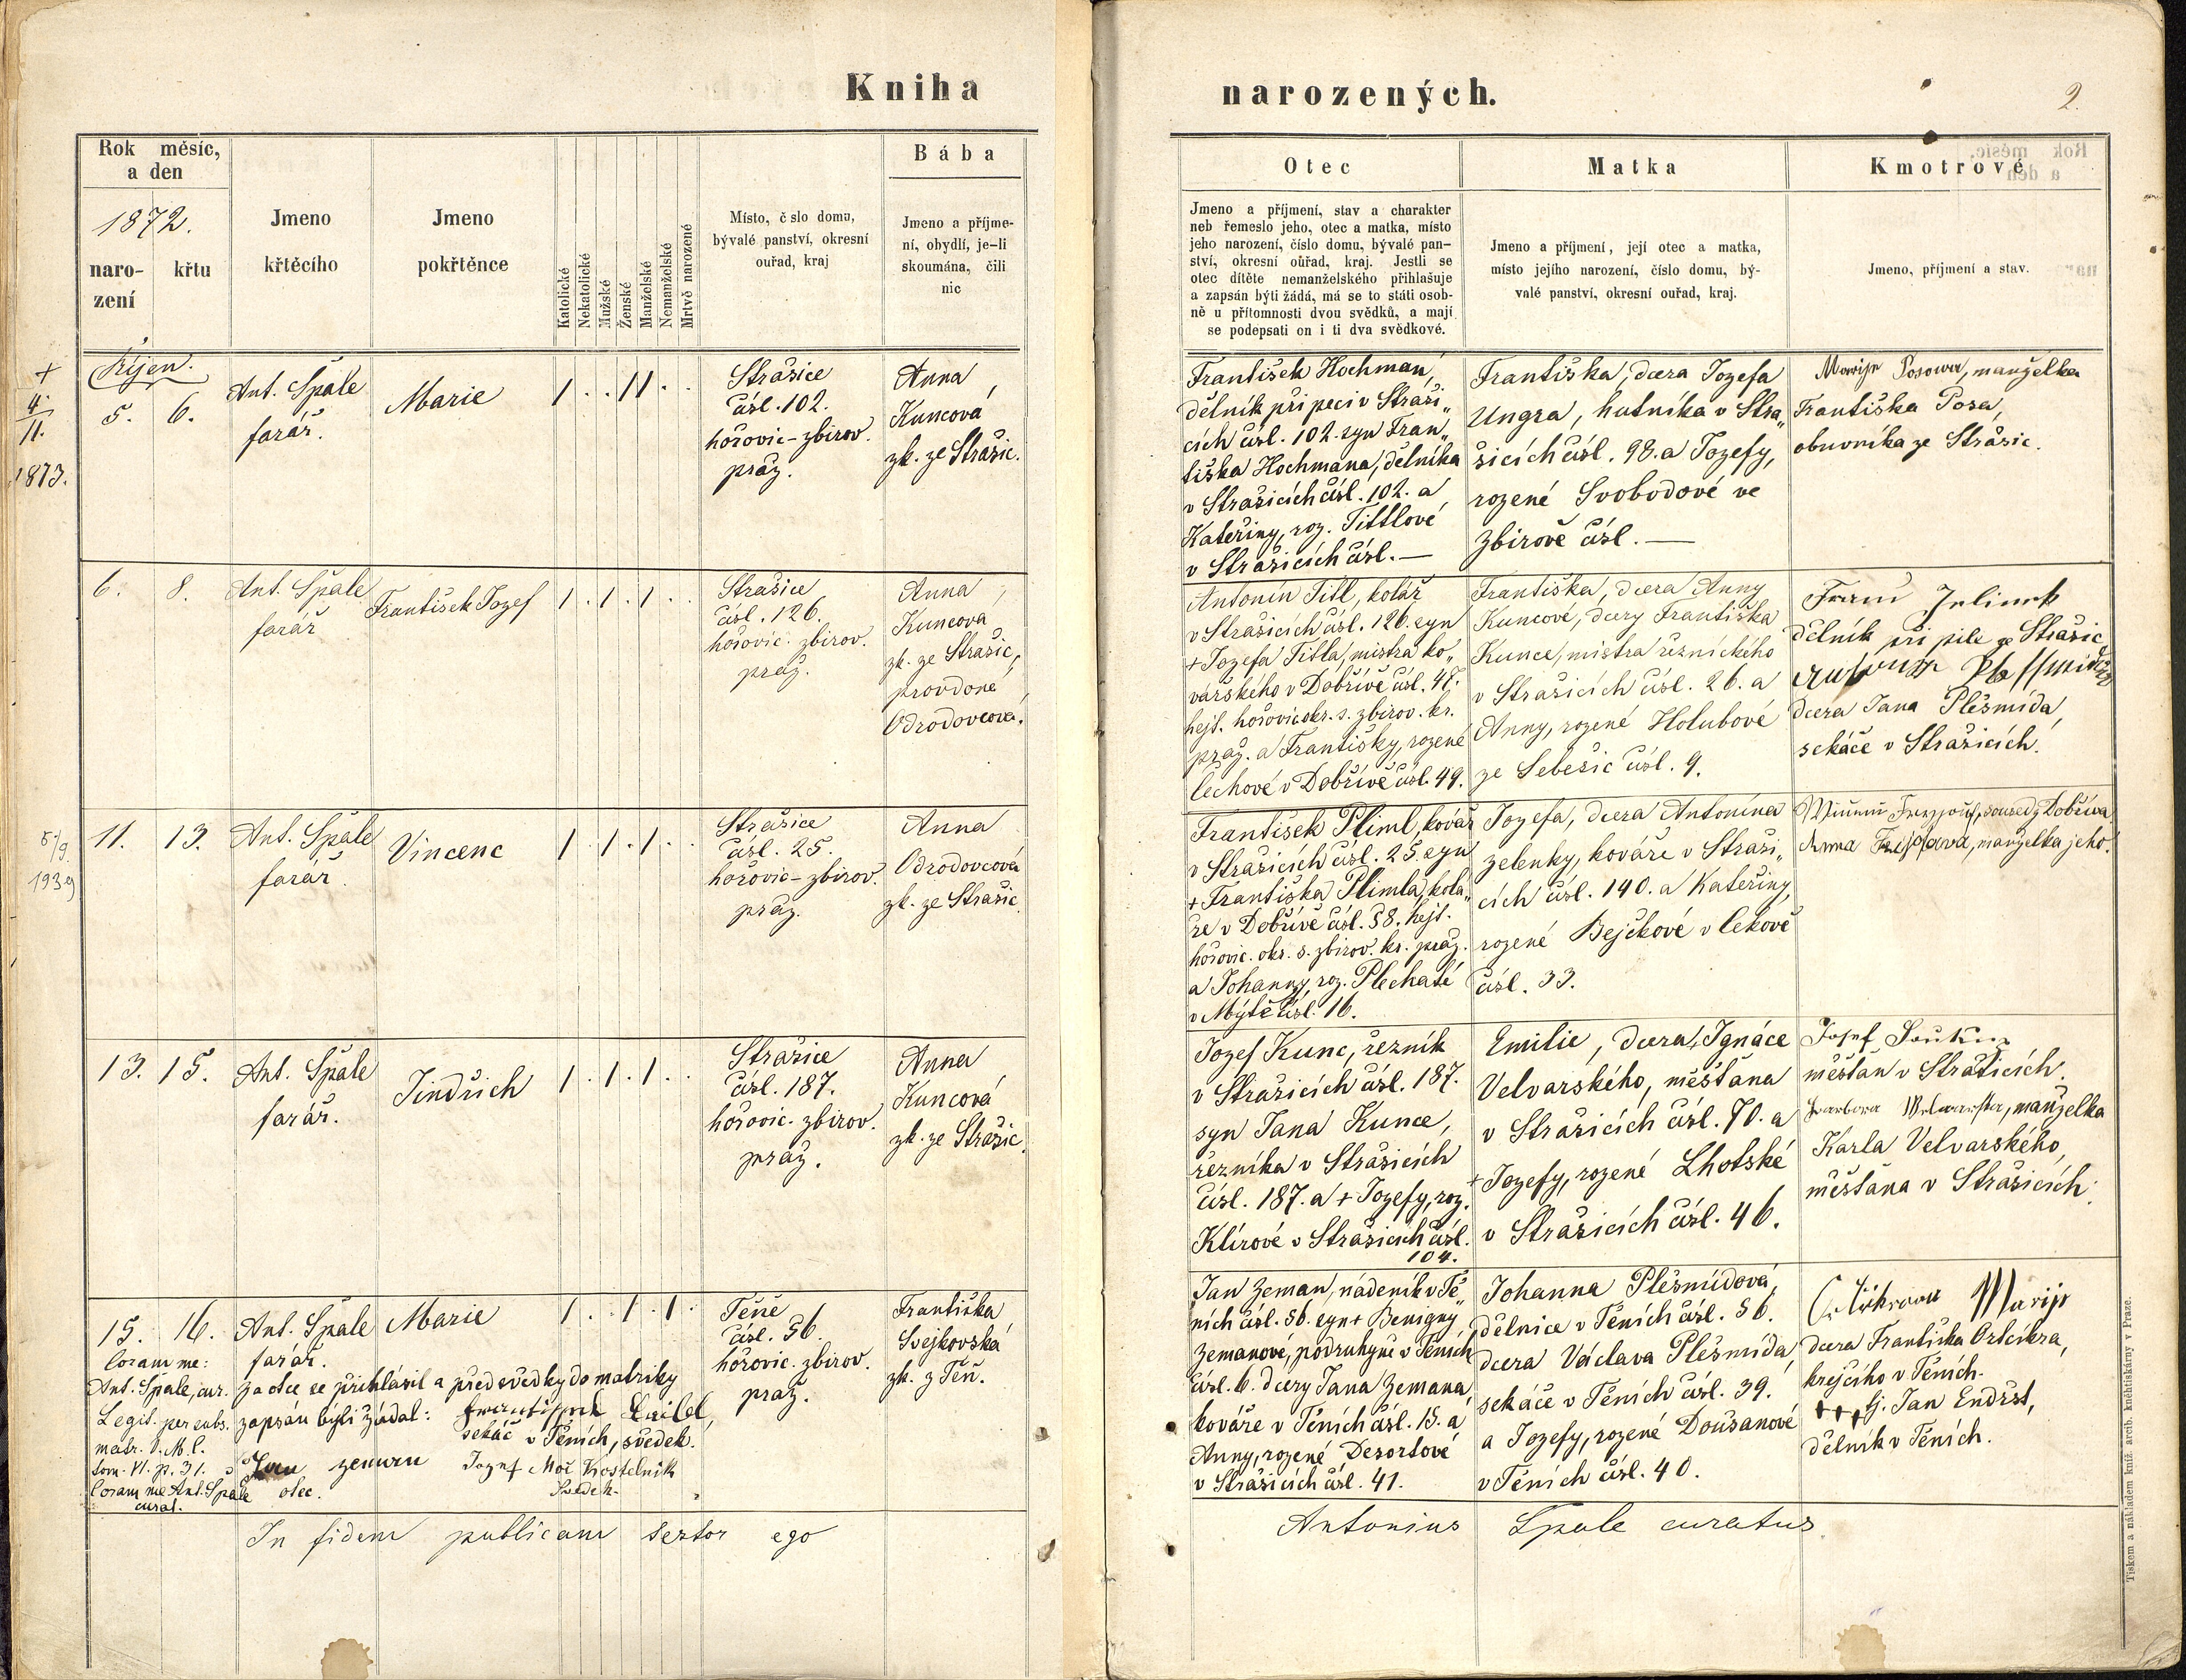 Kniha
narozených.
2.
Rok měsíc,
a den
1872.
naro-
zení
křtu
Jmeno
křtěcího
Jmeno
pokřtěnce
Katolické
Nekatolické
Mužské
Ženské
Manželské
Nemanželské
Mrtvě narozené
Místo, č slo domu,
bývalé panství, okresní
ouřad, kraj
Bába
Jmeno a příjme-
ní, obydlí, je-li
skoumána, čili
nic
Otec
Jmeno a příjmení, stav a charakter
neb řemeslo jeho, otec a matka, místo
jeho narození, číslo domu, bývalé pan-
ství, okresní ouřad, kraj. Jestli se
otec dítěte nemanželského přihlašuje
a zapsán býti žádá, má se to státi osob-
ně u přítomnosti dvou svědků, a mají
se podepsati on i ti dva svědkové.
Matka
Jmeno a příjmení, její otec a matka,
místo jejího narození, číslo domu, bý-
valé panství, okresní ouřad, kraj.
Kmotrové
Jmeno, příjmení a stav.
+
4.
11.
1873.
Říjen.
5. 6.
Ant. Špale
farář.
Marie
1 . . 1 1 . .
Strašice
čísl. 102.
hořovic-zbirov.
praž.
Anna
Kuncová
zk. ze Strašic.
František Hochman,
dělník při peci v Straši„
cích čísl. 102. syn Fran„
tiška Hochmana, dělníka
v Strašicích čísl. 102. a
Kateřiny, roz. Tittlové
v Strašicích čísl. —
Františka, dcera Jozefa
Ungra, hutníka v Stra„
šicích čísl. 98. a Jozefy,
rozené Svobodové ve
Zbirově čísl. —
Marija Posowa, manželka
Františka Posa,
obuvníka ze Strašic.
6. 8.
Ant. Špale
farář
František Jozef
1 . 1 . 1 . .
Strašice
čísl. 126.
hořovic. zbirov.
praž.
Anna
Kuncova
zk. ze Strašic,
provdoné
Odrodovcová.
Antonín Titl, kolář
v Strašicích čísl. 126. syn
+ Jozefa Titla, mistra ko„
vářského v Dobřívě čísl. 47.
hejt. hořovic okr. s. zbirov. kr.
praž. a Františky, rozené
Čechové v Dobřívě čísl. 49.
Františka, dcera Anny
Kuncové, dcery Františka
Kunce, mistra řeznického
v Strašicích čísl. 26. a
Anny, rozené Holubové
ze Sebešic čísl. 9.
Jelinek
dělník při pile ze Strašic
dcera Jana Plešmída,
sekáče v Strašicích.
5/9
1939
11. 13.
Ant. Špale
farář.
Vincenc
1 . 1 . 1 . .
Strašice
čísl. 25.
hořovic-zbirov.
praž.
Anna
Odrodovcová
zk. ze Strašic.
František Pliml, kovář
v Strašicích čísl. 25. syn
+ Františka Plimla, kola„
ře v Dobřívě čísl. 58. hejt.
hořovic. okr. s. zbirov. kr. praž.
a Johanny, roz. Plechaté
v Mýtě čísl. 16.
Jozefa, dcera Antonína
Zelenky, kováře v Straši„
cích čísl. 140. a Kateřiny,
rozené Bejčkové v Cekově
čísl. 33.
soused z Dobříva
Anna manželka jeho.
13. 15.
Ant. Špale
farář.
Jindřich
1 . 1 . 1 . .
Strašice
čísl. 187.
hořovic. zbirov.
praž.
Anna
Kuncová
zk. ze Strašic.
Jozef Kunc, řezník
v Strašicích čísl. 187.
syn Jana Kunce,
řezníka v Strašicích
čísl. 187. a + Jozefy, roz.
Klírové v Strašicích čísl.
104.
Emilie, dcera Ignáce
Velvarského, měšťana
v Strašicích čísl. 70. a
+ Jozefy, rozené Lhotské
v Strašicích čísl. 46.
Josef Soukup
měšťan v Strašicích.
Barbora Welwarska, manželka
Karla Velvarského,
měšťana v Strašicích.
15. 16.
Ant. Špale
farář.
Marie
1 . . 1 . 1 .
Těně
čísl. 56.
hořovic. zbirov.
praž.
Františka
Svejkovská
zk. z Těň.
Coram me:
Ant. Špale, cur.
Legit. per subs.
matr. S. M. C.
tom. VI. p. 31.
Coram me Ant. Špale
curat.
za otce se přihlásil a před svědky do matriky
zapsán býti žádal:
sekáč v Těních, svědek.
Jan Zeman
otec.
Jozef Moc Kostelnik
Svědek.
Jan Zeman, nádeník v Tě„
ních čísl. 56. syn + Benigny
Zemanové, podruhyně v Těních
čísl. 6. dcery Jana Zemana
kováře v Těních čísl. 15. a
Anny, rozené Desortové
v Strašicích čísl. 41.
Johanna Plešmídová,
dělnice v Těních čísl. 56.
dcera Václava Plešmída,
sekáče v Těních čísl. 39.
a Jozefy, rozené Doušanové
v Těních čísl. 40.
Marije
dcera Františka Ortcikra,
krejčího v Těních.
+++ tj. Jan Endršt,
dělník v Těních.
In fidem publicam testor ego
Antonius Špale curatus.
Tiskem a nákladem kníž. arcib. knihtiskárny v Praze.